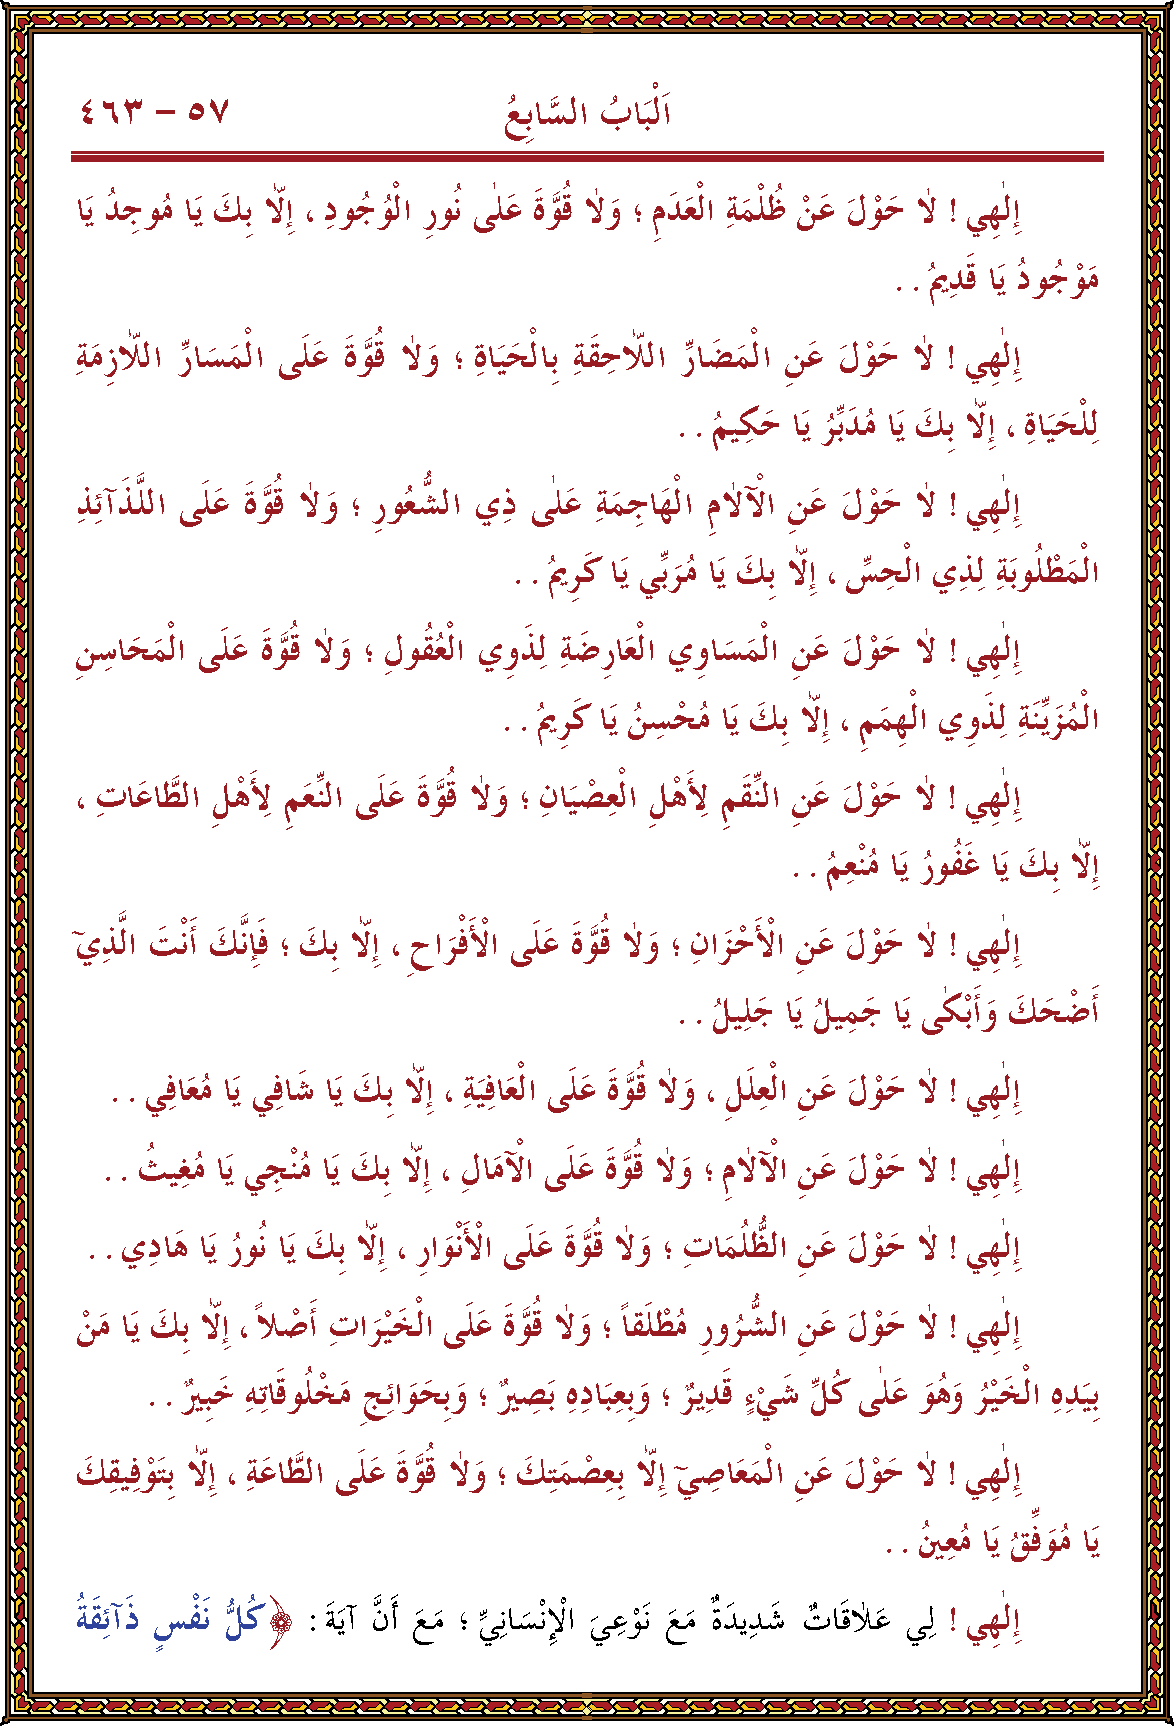 اَلْبَابُ السَّابِعُ ٥٧ – ٤٦٣
إِلٰهِي ! لَا حَوْلَ عَنْ ظُلْمَةِ الْعَدَمِ ؛ وَلَا قُوَّةَ عَلٰى نُورِ الْوُجُودِ ، إِلَّا بِكَ يَا مُوجِدُ يَا
مَوْجُودُ يَا قَدِيمُ . .
إِلٰهِي ! لَا حَوْلَ عَنِ الْمَضَارِّ اللَّاحِقَةِ بِالْحَيَاةِ ؛ وَلَا قُوَّةَ عَلَى الْمَسَارِّ اللَّازِمَةِ
لِلْحَيَاةِ ، إِلَّا بِكَ يَا مُدَبِّرُ يَا حَكِيمُ . .
إِلٰهِي ! لَا حَوْلَ عَنِ الْآلَامِ الْهَاجِمَةِ عَلٰى ذِي الشُّعُورِ ؛ وَلَا قُوَّةَ عَلَى اللَّذَآئِذِ
الْمَطْلُوبَةِ لِذِي الْحِسِّ ، إِلَّا بِكَ يَا مُرَبِّي يَا كَرِيمُ . .
إِلٰهِي ! لَا حَوْلَ عَنِ الْمَسَاوِي الْعَارِضَةِ لِذَوِي الْعُقُولِ ؛ وَلَا قُوَّةَ عَلَى الْمَحَاسِنِ
الْمُزَيِّنَةِ لِذَوِي الْهِمَمِ ، إِلَّا بِكَ يَا مُحْسِنُ يَا كَرِيمُ . .
إِلٰهِي ! لَا حَوْلَ عَنِ النِّقَمِ لِأَهْلِ الْعِصْيَانِ ؛ وَلَا قُوَّةَ عَلَى النِّعَمِ لِأَهْلِ الطَّاعَاتِ ،
إِلَّا بِكَ يَا غَفُورُ يَا مُنْعِمُ . .
إِلٰهِي ! لَا حَوْلَ عَنِ الْأَحْزَانِ ؛ وَلَا قُوَّةَ عَلَى الْأَفْرَاحِ ، إِلَّا بِكَ ؛ فَإِنَّكَ أَنْتَ الَّذِيٓ
أَضْحَكَ وَأَبْكٰى يَا جَمِيلُ يَا جَلِيلُ . .
إِلٰهِي ! لَا حَوْلَ عَنِ الْعِلَلِ ، وَلَا قُوَّةَ عَلَى الْعَافِيَةِ ، إِلَّا بِكَ يَا شَافِي يَا مُعَافِي . .
إِلٰهِي ! لَا حَوْلَ عَنِ الْآلَامِ ؛ وَلَا قُوَّةَ عَلَى الْآمَالِ ، إِلَّا بِكَ يَا مُنْجِي يَا مُغِيثُ . .
إِلٰهِي ! لَا حَوْلَ عَنِ الظُّلُمَاتِ ؛ وَلَا قُوَّةَ عَلَى الْأَنْوَارِ ، إِلَّا بِكَ يَا نُورُ يَا هَادِي . .
إِلٰهِي ! لَا حَوْلَ عَنِ الشُّرُورِ مُطْلَقاً ؛ وَلَا قُوَّةَ عَلَى الْخَيْرَاتِ أَصْلاً ، إِلَّا بِكَ يَا مَنْ
بِيَدِهِ الْخَيْرُ وَهُوَ عَلٰى كُلِّ شَيْءٍ قَدِيرٌ ؛ وَبِعِبَادِهِ بَصِيرٌ ؛ وَبِحَوَائِجِ مَخْلُوقَاتِهِ خَبِيرٌ . .
إِلٰهِي ! لَا حَوْلَ عَنِ الْمَعَاصِيٓ إِلَّا بِعِصْمَتِكَ ؛ وَلَا قُوَّةَ عَلَى الطَّاعَةِ ، إِلَّا بِتَوْفِيقِكَ
يَا مُوَفِّقُ يَا مُعِينُ . .
إِلٰهِي ! لِي عَلَاقَاتٌ شَدِيدَةٌ مَعَ نَوْعِيَ الْإِنْسَانِيِّ ؛ مَعَ أَنَّ آيَةَ : ﴿كُلُّ نَفْسٍ ذَآئِقَةُ